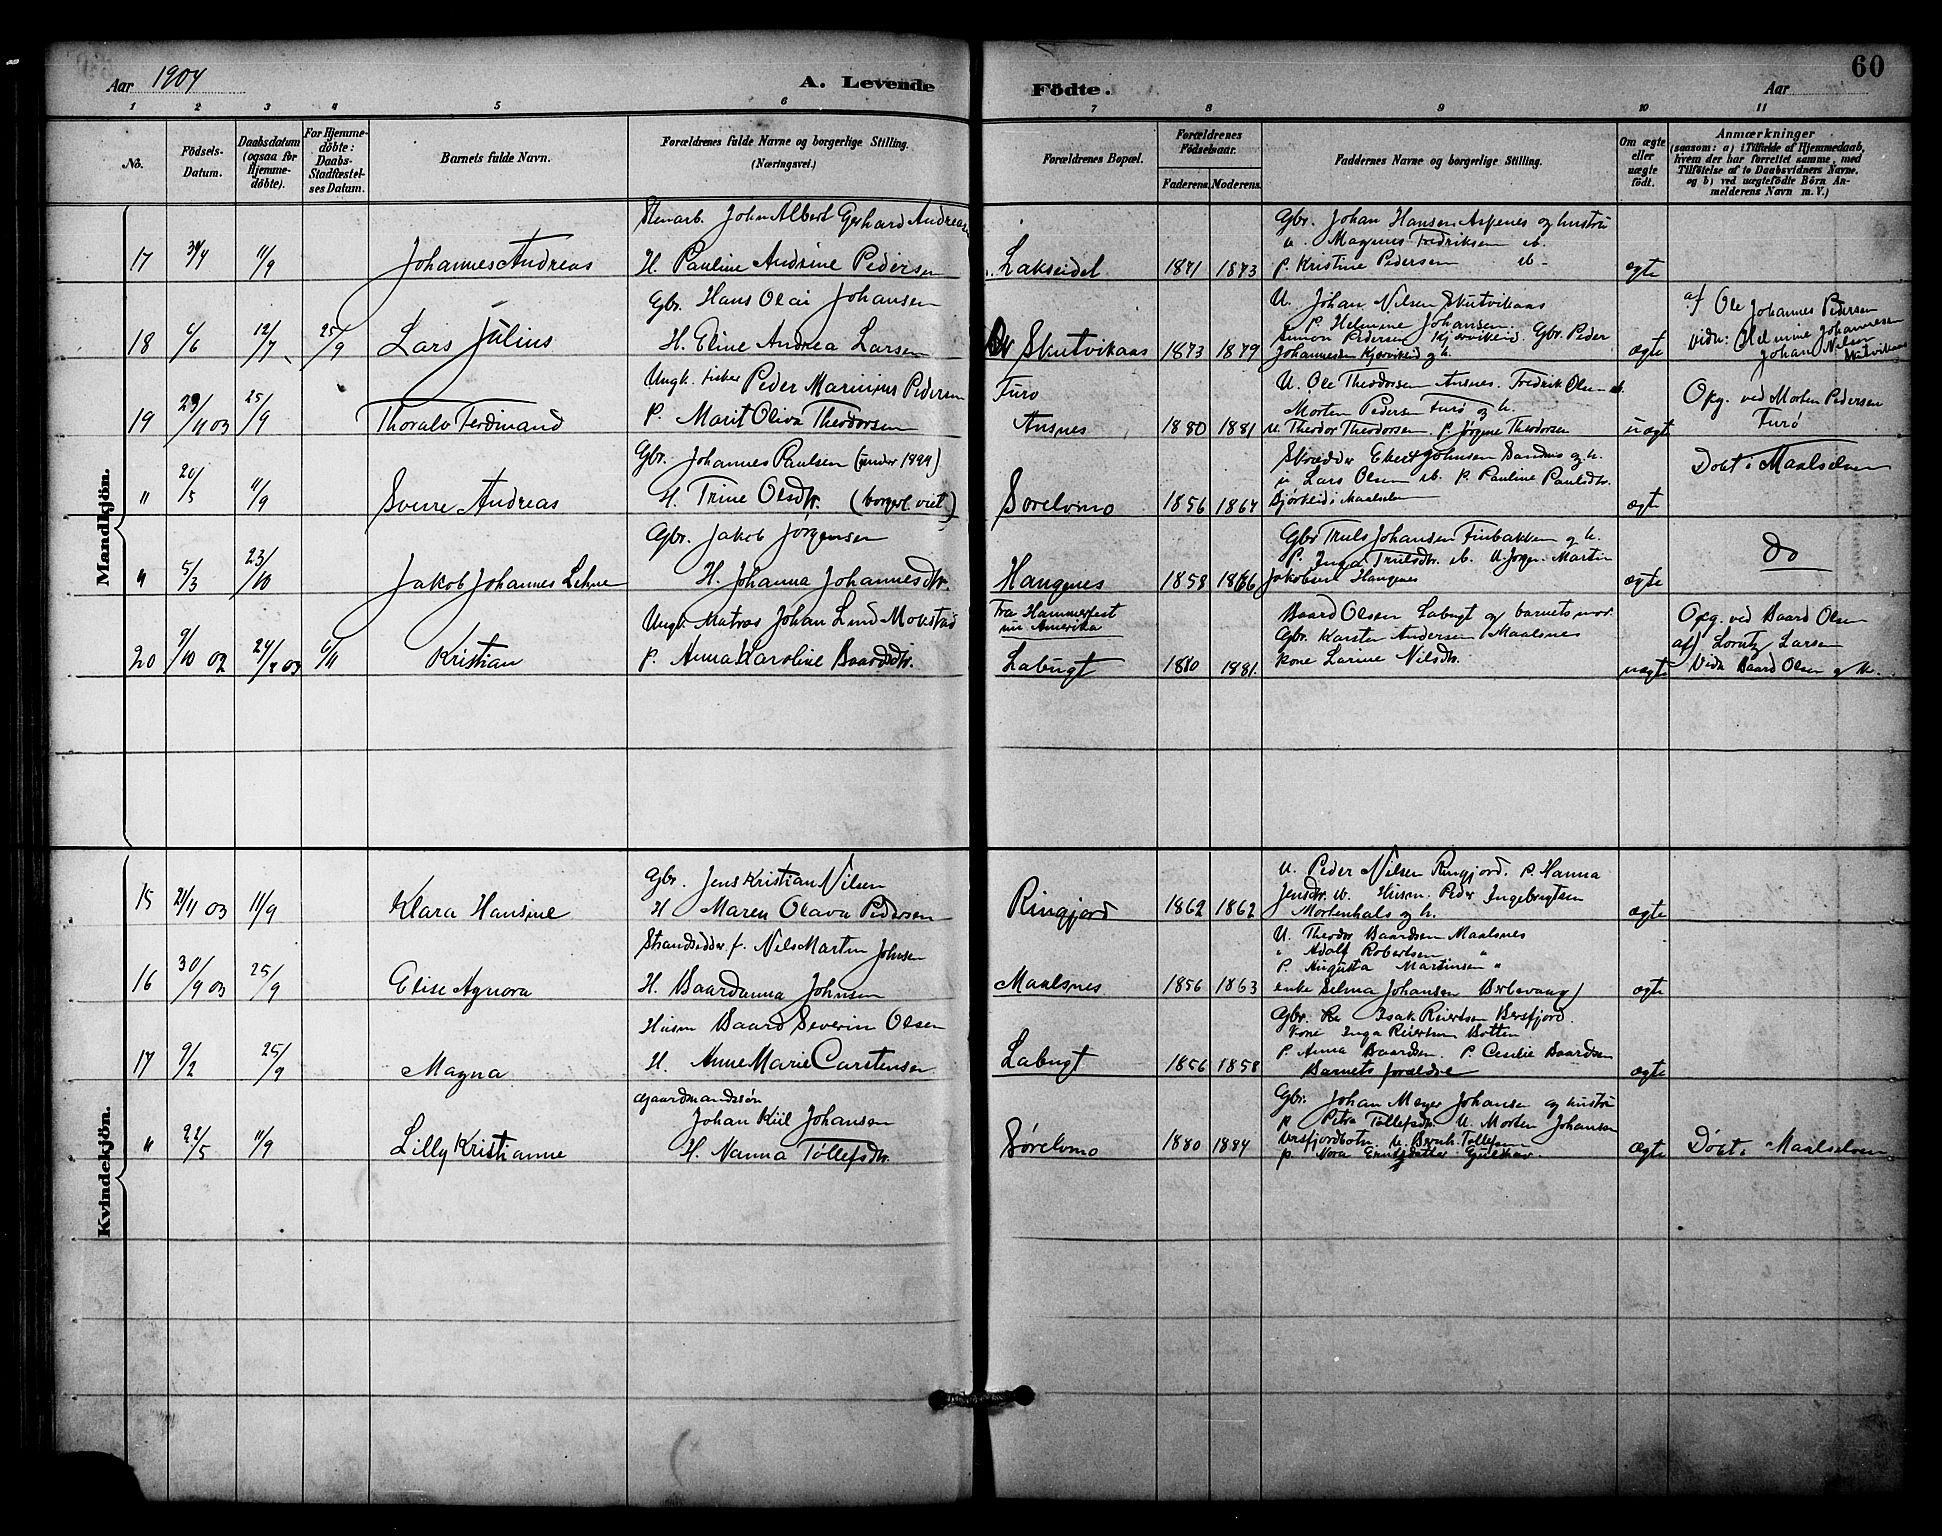 60
Aar 1904 A. Levende Födte. Aar
1 2 3 4 5 6 7 8 9 10 11
No.
Födsels-Datum.
Daabsdatum (ogsaa for Hjemmedöbte).
For Hjemmedöbte: Daabs-Stadfæstelses Datum.
Barnets fulde Navn.
Forældrenes fulde Navne og borgerlige Stilling. (Næringsvei.)
Forældrenes Bopæl.
Forældrenes Födselsaar.
Faderens. Moderens.
Faddernes Navne og borgerlige Stilling.
Om ægte eller uægte födt.
Anmærkninger
(saasom: a) i Tilfælde af Hjemmedaab,
hvem der har forrettet samme, med
Tilföielse af to Daabsvidners Navne.
og b) ved uægtefödte Börn An-
melderens Navn m. V.)
Mandkjön.
17 11/9 Johannes Andreas
Stenarb. John Albert Gerhard Andreas
H. Pauline Andrine Pedersen
Lakseidet 1871 1873
Gbr. Johan Hansen Aspenes og hustru
u. Magnus Fredriksen ib.
p. Kristine Pedersen ib.
ægte
18 6/6 12/7 25/9 Lars Julius
Gbr. Hans Olai Johansen
H. Eline Andrea Larsen
Skutvikaas 1873 1879
U. Johan Nilsen Skutvikaas
P. Helmine Johansen.
Simon Pedersen Kjørvikeid Gbr. Peder
Johannesen Kjørvikeid og h.
ægte
af Ole Johannes Pedersen
vidn: Helmine Johannesen
Johan Nilsen
Skutvikaas
19 29/11 03 25/9 Thoralv Ferdinand
Ungk. fisker Peder Marinius Pedersen
P. Marit Oliva Theodorsen
Furö
Ansnes 1880 1881
U. Ole Theodorsen Ansnes. Fredrik Olsen ib.
Morten Pedersen Furø og h.
u. Theodor Theodorsen. p. Jørgine Theodorsen
uægte
Opg. ved Morten Pedersen
Furö
" 20/5 11/9 Sverre Andreas
Gbr. Johannes Paulsen (under 1899)
H. Trine Olsdtr. (borgerl. viet)
Sørelvmo 1856 1864
Skrædder Ebert Johnsen Sandnes og h.
u Lars Olsen ib. p. Pauline Paulsdtr.
Bjørkeid i Maalselven
ægte
Døbt i Maalselven
" 5/3 23/10 Jakob Johannes Lehne
Gbr. Jakob Jørgensen
H. Johanna Johannesdtr.
Hangnes 1858 1866
Gbr Truls Johansen Finbakken og h.
P. Inga Trulsdtr. ib. U. Jørgen Martin
Jakobsen Hangnes
ægte
Do
20 9/10 02 6/11 Kristian
Ungk. Matros Johan Lund Mokstad
P. Anna Karoline Baardsdtr.
Fra Hammerfest
nu Amerika
Labugt 1880 1881.
Baard Olsen Labugt og barnets mor.
Gbr. Karsten Andersen Maalsnes
kone Larine Nilsdtr.
uægte
Opg. ved Baard Olsen
af Lorntz Larsen
Vidn Baard Olsen og
Kvindekjön.
15 21/11 03 11/9 Klara Hansine
Gbr. Jens Kristian Nilsen
H Maren Olava Pedersen
Ringjord 1862 1862
U. Peder Nilsen Ringjord. P. Hanna
Jensdtr. ib. Husm. Peder Ingebrigtsen
Mortenhals og h.
ægte
16 30/9 03 25/9 Elise Agnora
Strandsidder f. Nils Martin Johnsen
H. Baardanna Johnsen
Maalsnes 1856 1863
U. Theodor Baardsen Maalsnes
" Adolf Robertsen "
P. Augusta Martinsen "
enke Selma Johansen Berlevaag
ægte
17 9/2 25/9 Magna
Husm Baard Severin Olsen
H. Anne Marie Carstensen
Labugt 1856 1858
Gbr. Isak Reiertsen Bersfjord.
Kone Inga Reiertsen Botten
P. Anna Baardsen. P. Cecilie Baardsen
Barnets forældre
ægte
" 22/5 11/9 Lilly Kristianne
Gaardmandssön
Johan Kiil Johansen
H. Nanna Tøllefsdtr.
Sørelvmo 1880 1884
Gbr. Johan Meyer Johansen og hustru
p. Petra Tollefsdtr. U. Morten Johansen
U. Bernh. Tollefsen
P. Nora
ægte
Døbt i Maalselven